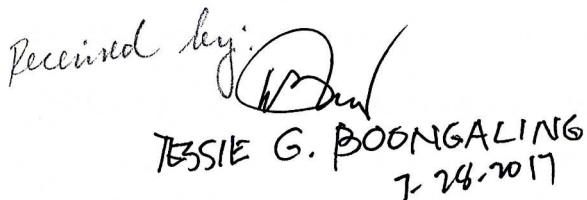 Received by:
TESSIE G. BOONGALING
7-28-2017